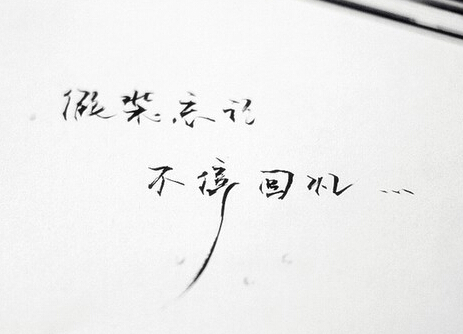 假装忘记
不停回忆...